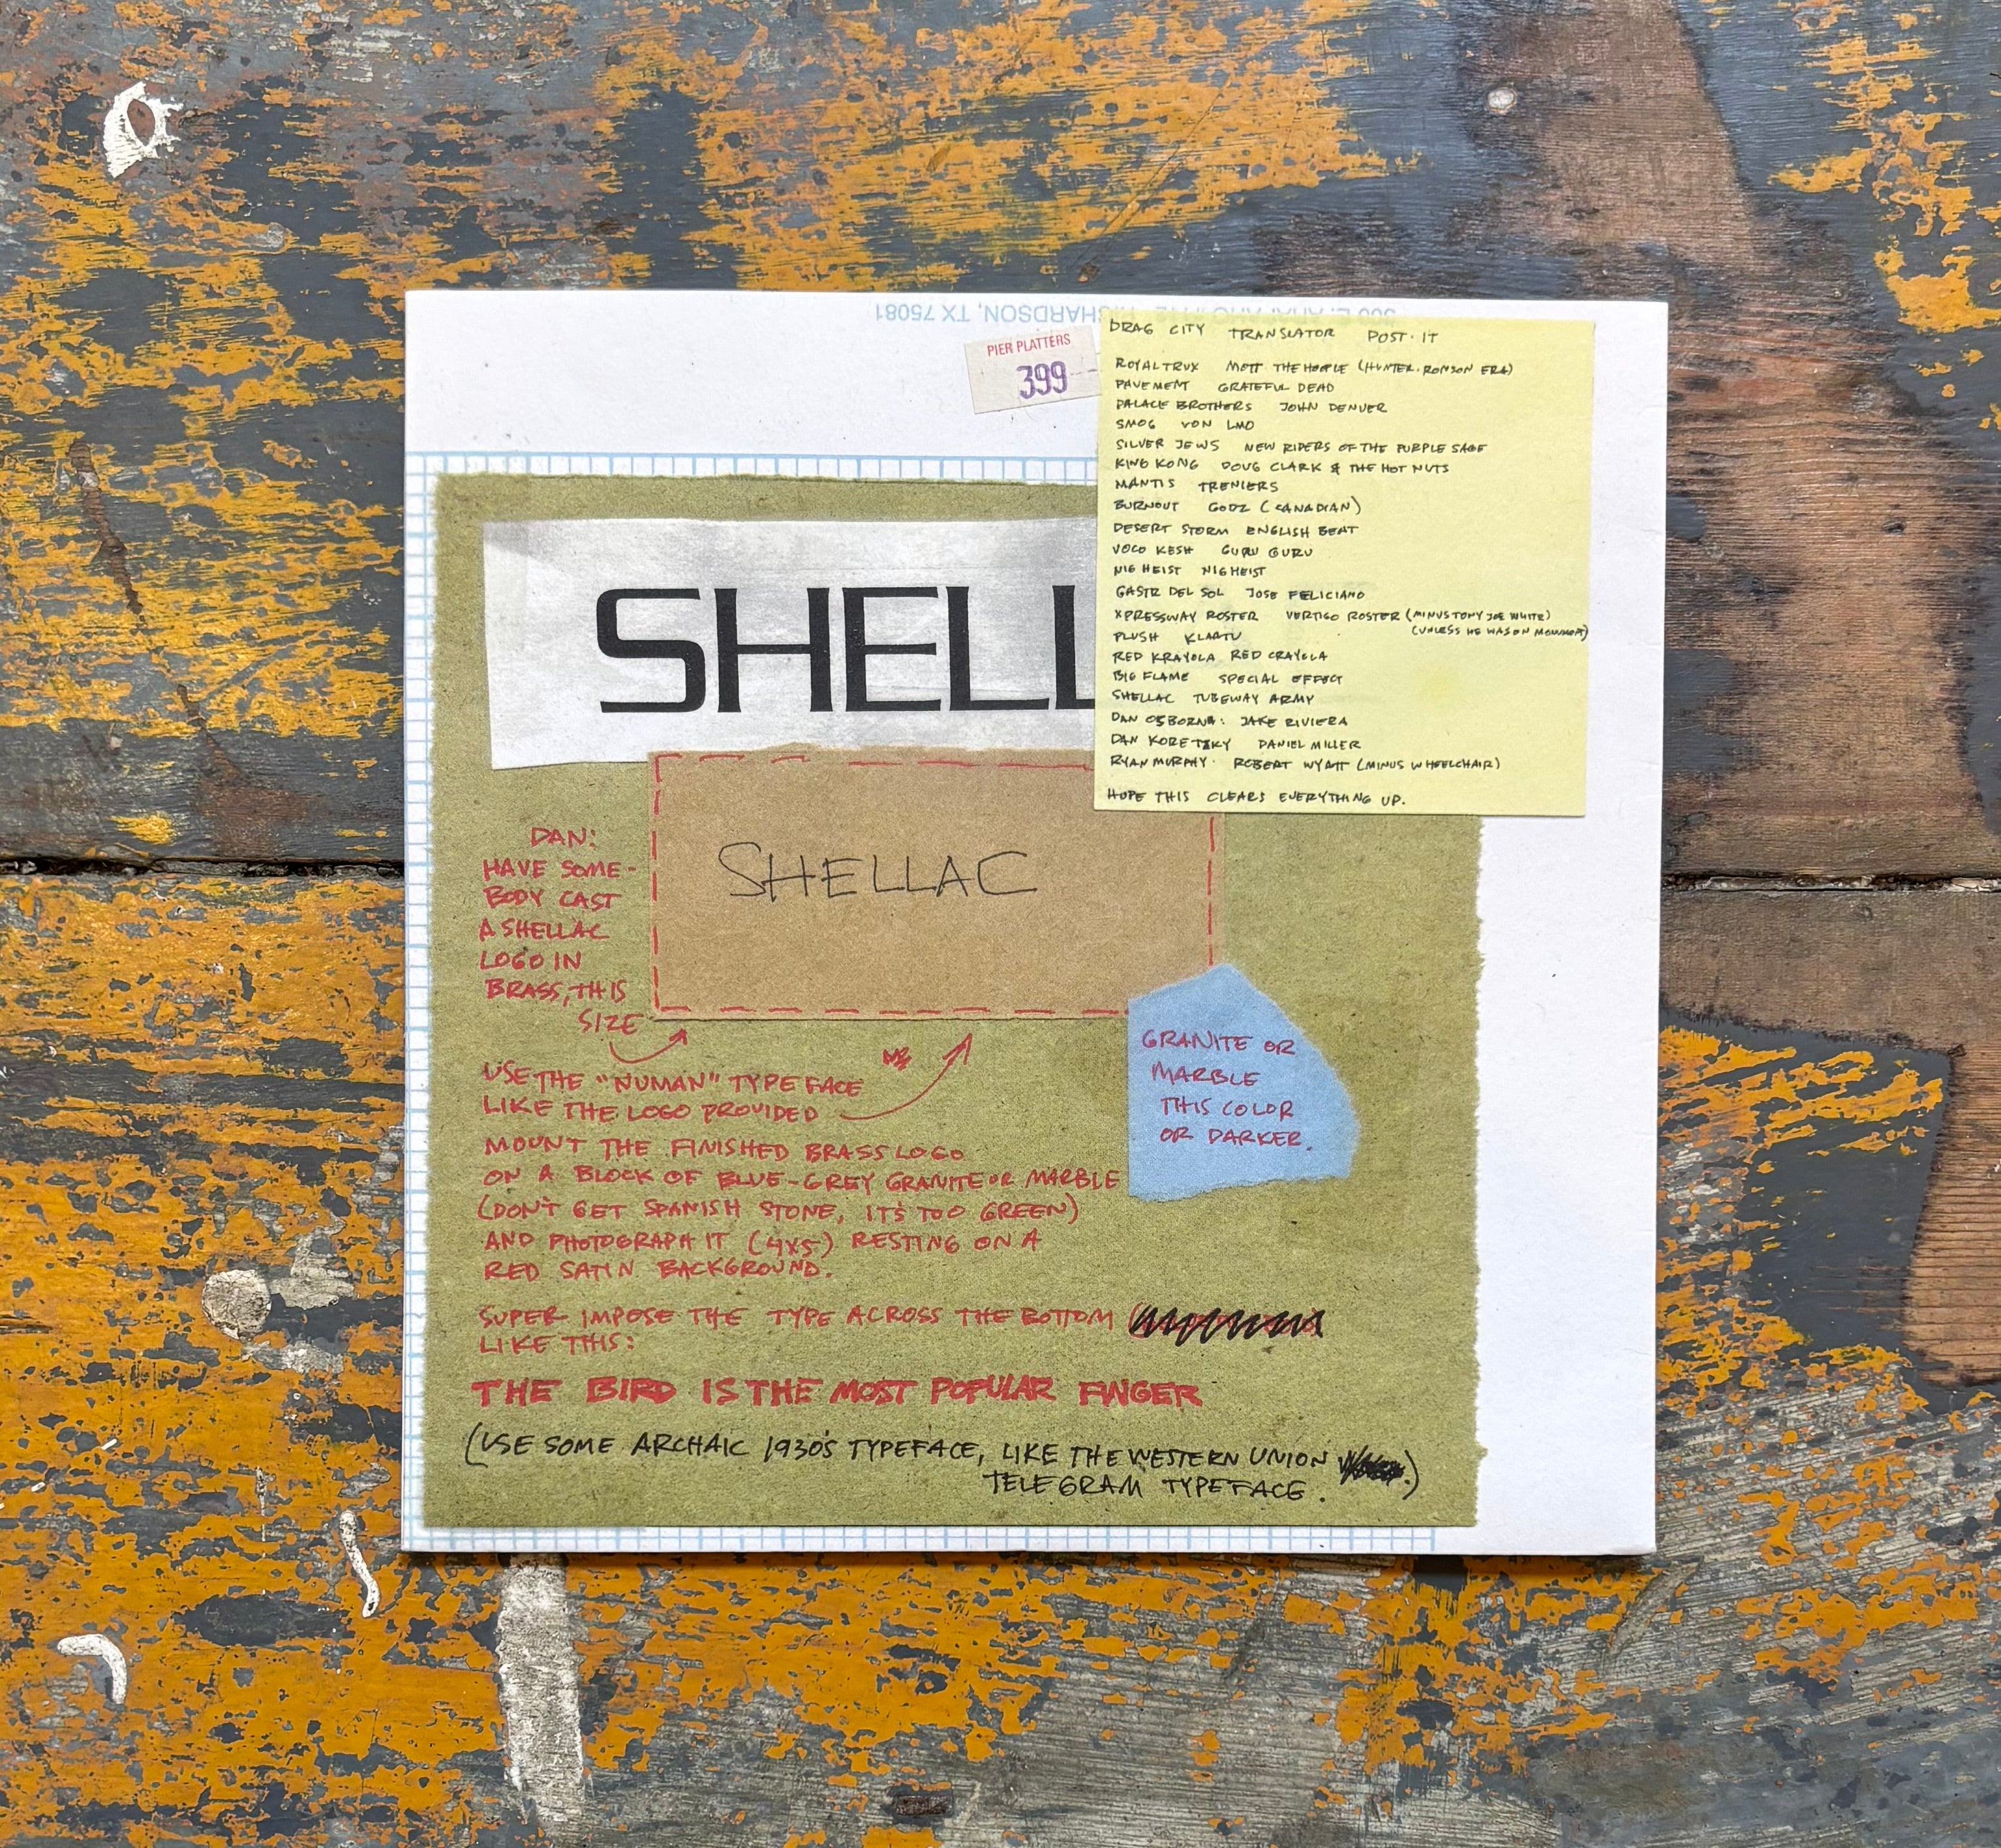 RICHARDSON, TX 75081
PIER PLATTERS
399
DRAG CITY TRANSLATOR POST-IT
ROYAL TRUX MOTT THE HOOPLE (HUNTER-RONSON ERA)
PAVEMENT GRATEFUL DEAD
PALACE BROTHERS JOHN DENVER
SMOG VON LMO
SILVER JEWS NEW RIDERS OF THE PURPLE SAGE
KING KONG DOUG CLARK & THE HOT NUTS
MANTIS TRENIERS
BURNOUT GODZ (CANADIAN)
DESERT STORM ENGLISH BEAT
VOCO KESH GURU GURU
NIG HEIST NIG HEIST
GASTR DEL SOL JOSE FELICIANO
XPRESSWAY ROSTER VERTIGO ROSTER (MINUS TONY JOE WHITE)
(UNLESS HE WAS ON MONUMENT)
PLUSH KLAATU
RED KRAYOLA RED CRAYOLA
BIG FLAME SPECIAL EFFECT
SHELLAC TUBEWAY ARMY
DAN OSBORNA: JAKE RIVIERA
DAN KORETZKY DANIEL MILLER
RYAN MURPHY ROBERT WYATT (MINUS WHEELCHAIR)
HOPE THIS CLEARS EVERYTHING UP.
SHELL
SHELLAC
DAN:
HAVE SOME-
BODY CAST
A SHELLAC
LOGO IN
BRASS, THIS
SIZE
USE THE "NUMAN" TYPEFACE
LIKE THE LOGO PROVIDED
GRANITE OR
MARBLE
THIS COLOR
OR DARKER.
MOUNT THE FINISHED BRASS LOGO
ON A BLOCK OF BLUE-GREY GRANITE OR MARBLE
(DON'T GET SPANISH STONE, IT'S TOO GREEN)
AND PHOTOGRAPH IT (4X5) RESTING ON A
RED SATIN BACKGROUND.
SUPER IMPOSE THE TYPE ACROSS THE BOTTOM
LIKE THIS:
THE BIRD IS THE MOST POPULAR FINGER
(USE SOME ARCHAIC 1930'S TYPEFACE, LIKE THE WESTERN UNION
TELEGRAM TYPEFACE.)